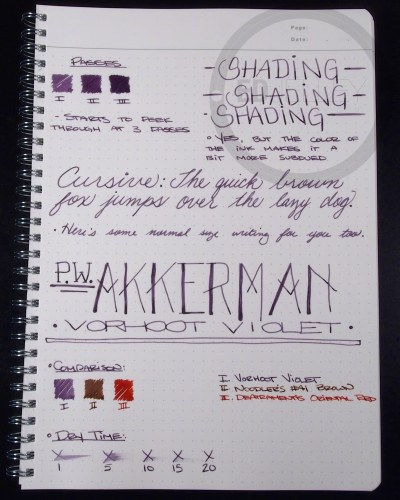 Page:
Date:
Passes
I II III
- Starts to peek
through at 3 passes
-SHADING-
-SHADING-
-SHADING-
• Yes, but the color of
the ink makes it a
bit more subdued
Cursive: The quick brown
fox jumps over the lazy dog.
• Here's some normal size writing for you too.
P.W. AKKERMAN
• VORHOOT VIOLET •
• Comparison:
I II III
I. Vorhoot Violet
II. Noodler's #41 Brown
III. Diamine Oriental Red
• Dry Time:
X X X X X
1 5 10 15 20